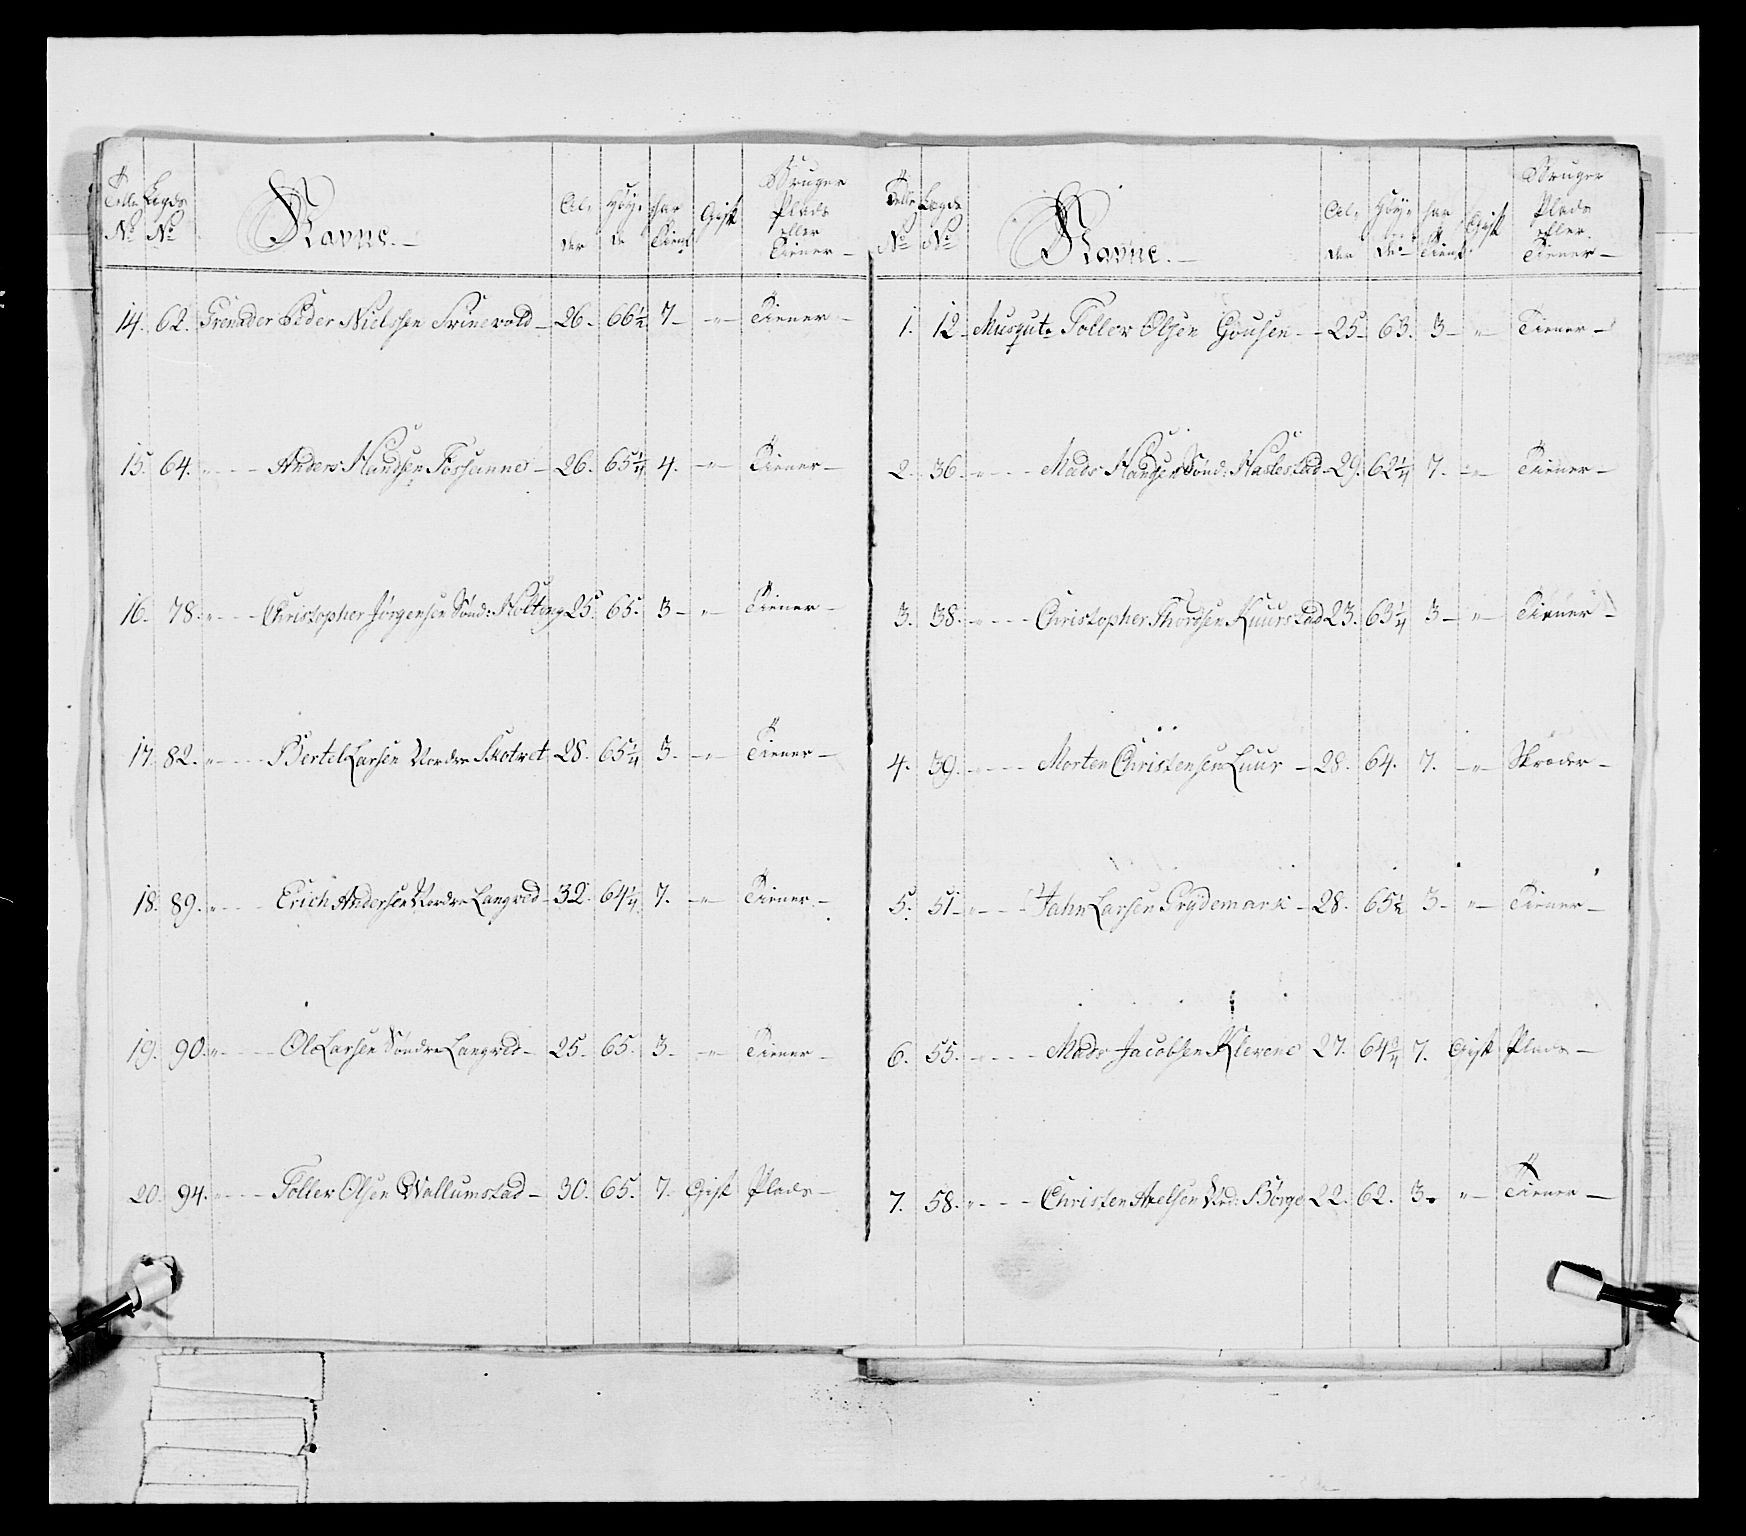 Tolle No Legds No Navne. Alder Høyde har Tient Gift Bruger Plads eller Tiener
14. 62. Grenader Peder Nielssen Trinewold 26. 66½ 7 " Tiener
15. 64. " Anders Handsen Fossanne 26. 65¼ 4. " Tiener
16. 78. " Christopher Jørgensen Sønd: Holting 25. 65. 3 " Tiener
17. 82. " Bertel Larsen Nordre Skotvet 28. 65¼ 3. " Tiener
18. 89. " Erich Andersen Nordre Langved 32. 64¼ 7. " Tiener
19. 90. " Ole Larsen Søndre Langved 25. 65. 3. " Tiener
20. 94. " Toller Olsen Wallumstad 30. 65. 7. Gift Plads
Tolle No Legds No Navne. Alder Høyde har Tient Gift Bruger Plads eller Tiener
1. 12 Musqute Toller Olsen Gousen 25 63. 3 " Tiener
2. 36. " Mads Handsen Sønd: Haslestad 29. 62¼ 7. " Tiener
3. 38. " Christopher Thordsen Kuurstad 23. 63¼ 3 " Tiener
4. 39. " Morten Christensen Luur 28. 64. 7. " Skræder
5. 51 " Jahn Larsen Grydemark 28. 65½ 3 " Tiener
6. 55. " Mads Jacobsen Klevene 27. 64¾ 7. Gift Plads
7. 58. " Christen Axelsen Nrd: Børge 22. 62. 3. " Tiener